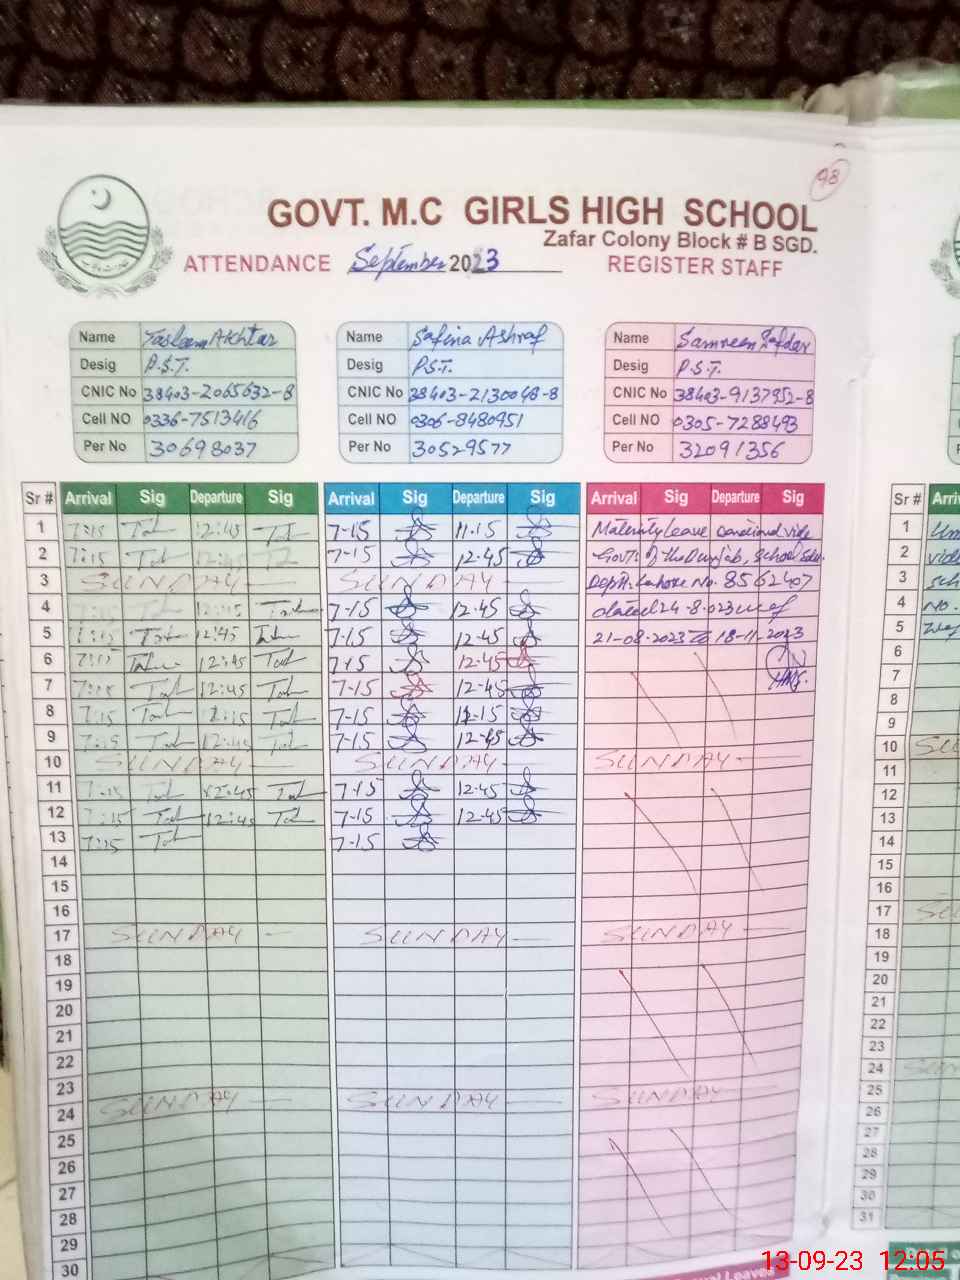 98
GOVT. M.C GIRLS HIGH SCHOOL
Zafar Colony Block # B SGD.
ATTENDANCE September 2023 REGISTER STAFF
Name Tasleem Akhtar Name Safina Ashraf Name Samreen Safdar
Desig P.S.T. Desig P.S.T. Desig P.S.T.
CNIC No 38403-2065632-8 CNIC No 38403-2130048-8 CNIC No 38403-9137952-8
Cell NO 0336-7513416 Cell NO 0306-8480951 Cell NO 0305-7288493
Per No 30698037 Per No 30529577 Per No 32091356
Sr # Arrival Sig Departure Sig Arrival Sig Departure Sig Arrival Sig Departure Sig Sr # Arri
1 7:15 12:45 7-15 11.15 Maternity Leave sanctioned vide 1
2 7:15 12:45 7-15 12-45 Govt: of the Punjab, School Edu: 2
3 SUNDAY SUNDAY Deptt: Lahore No. 8562407 3
4 7:15 12:45 7-15 12-45 dated 24-8-023 w.e.f 4 No.
5 7:15 12:45 7-15 12-45 21-08-2023 To 18-11-2023 5
6 7:15 12:45 7-15 12-45 6
7 7:15 12:45 7-15 12-45 7
8 7:15 12:15 7-15 12-15 8
9 7:15 12:45 7-15 12-45 9
10 SUNDAY SUNDAY SUNDAY 10 SU
11 7:15 12:45 7-15 12-45 11
12 7:15 12:45 7-15 12-45 12
13 7:15 7-15 13
14 14
15 15
16 16
17 SUNDAY SUNDAY SUNDAY 17 SU
18 18
19 19
20 20
21 21
22 22
23 23
24 SUNDAY SUNDAY SUNDAY 24
25 25
26 26
27 27
28 28
29 29
30 30
31
13-09-23 12:05